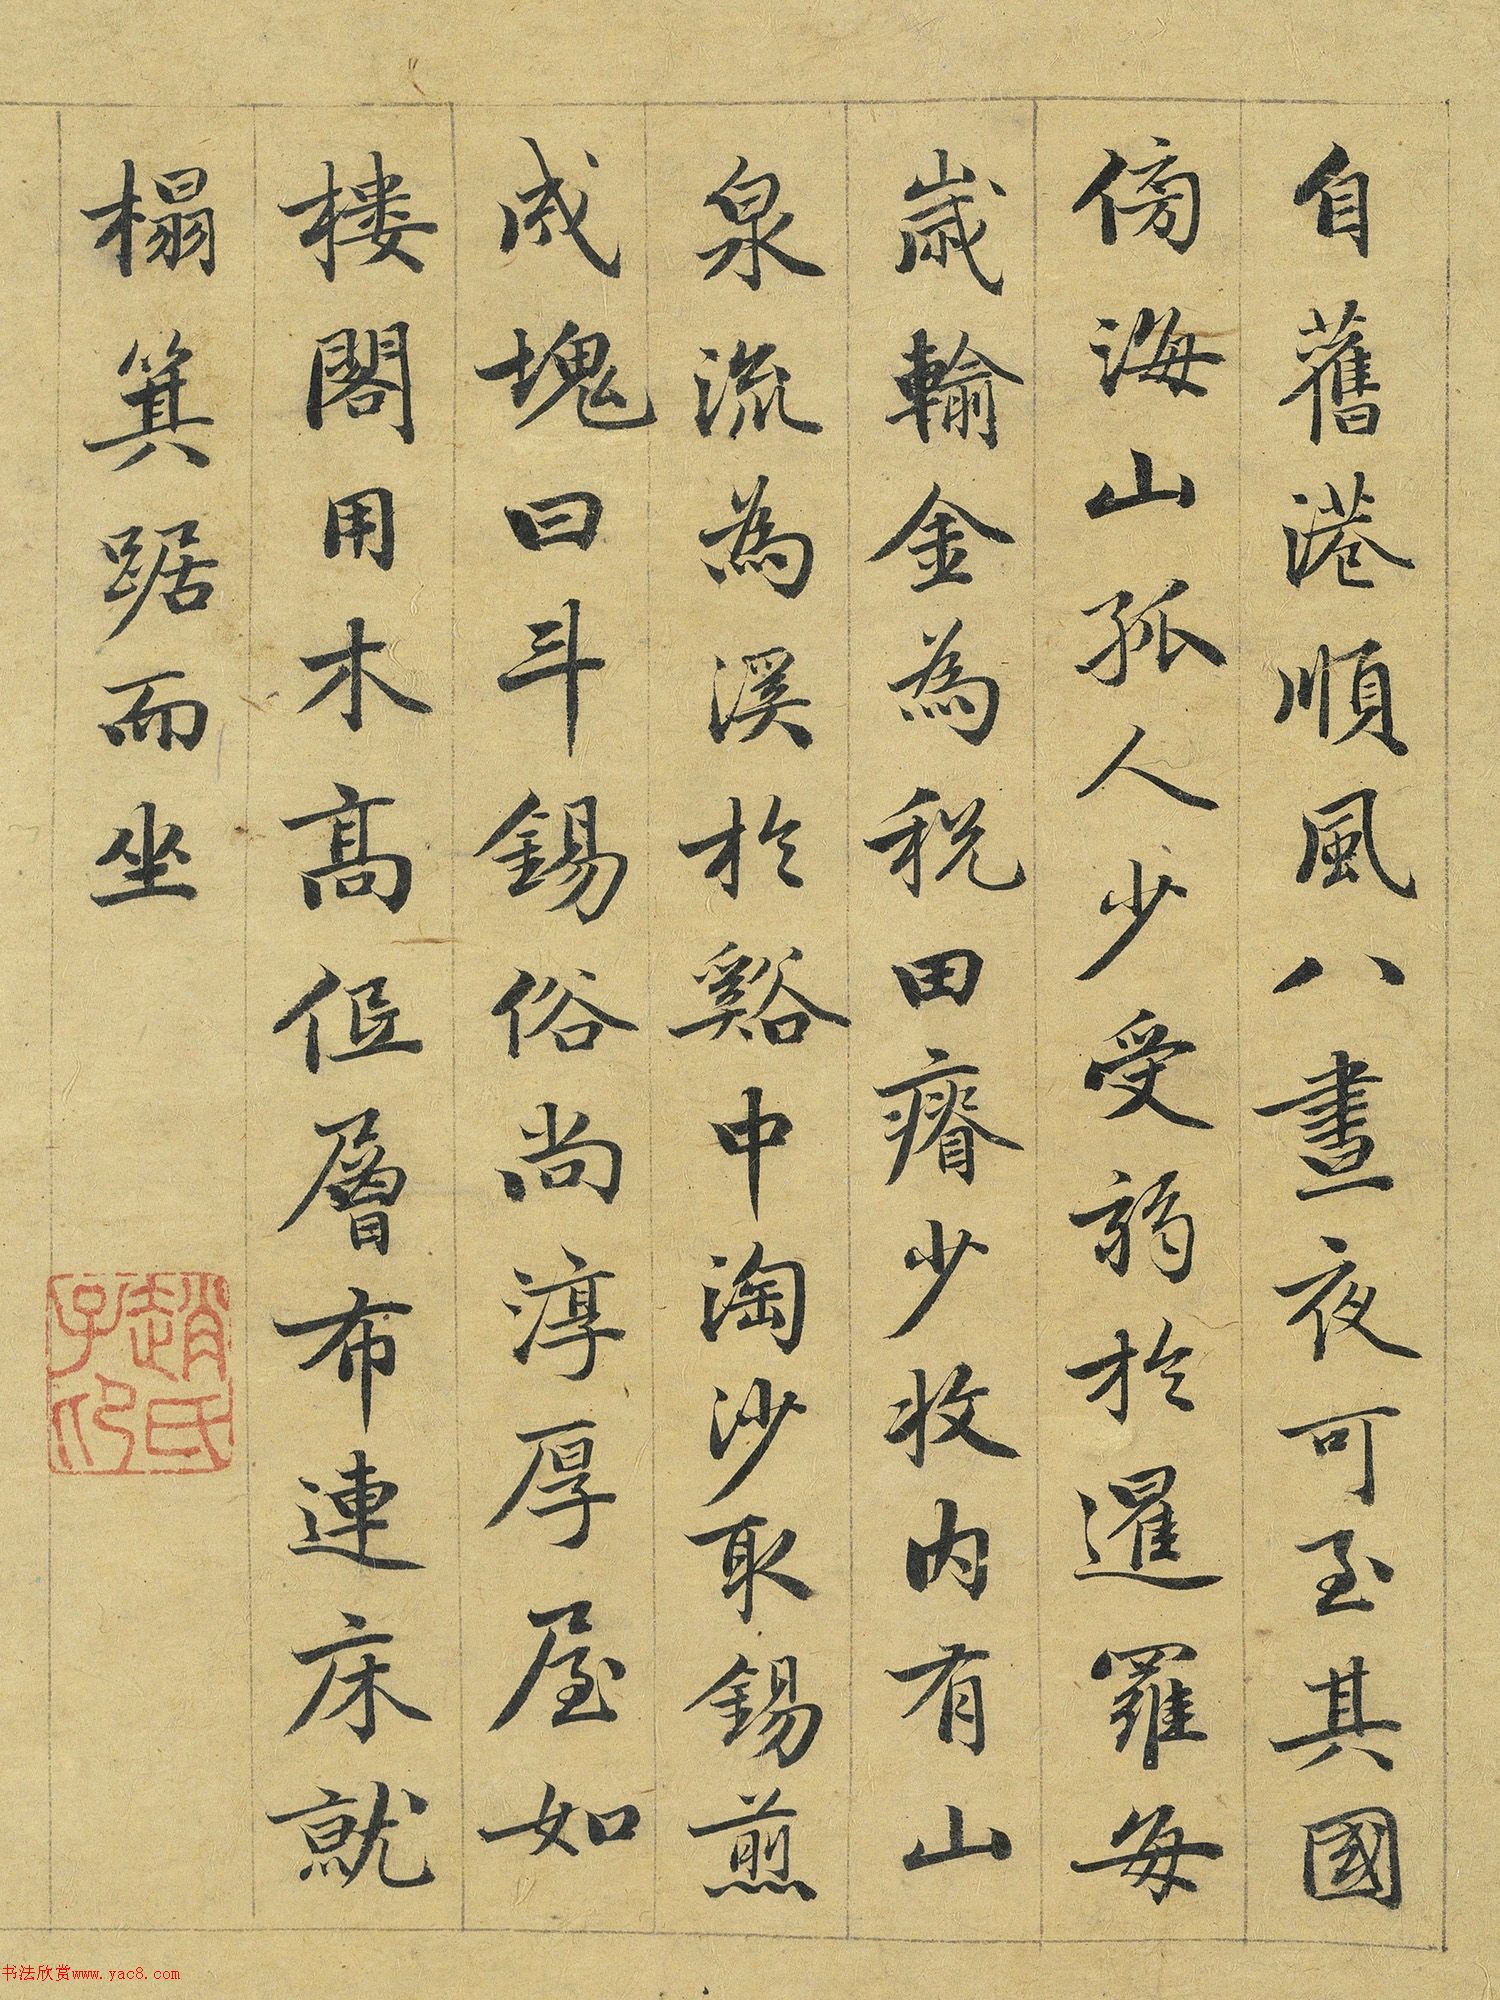 自舊港順風八晝夜可至其國
傍海山孤人少受弱於暹羅每
歲輸金為稅田瘠少收內有山
泉流為溪於谿中淘沙取錫煎
成塊曰斗錫俗尚淳厚屋如
樓閣用木高低層布連床就
榻箕踞而坐
趙氏
子印
书法欣赏www.yac8.com